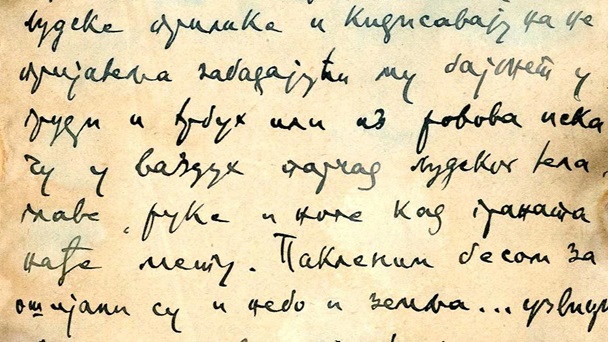 људске прилике и кидисавају на не
пријатеља забадајући му бајонет у
груди и трбух или из ровова иска
чу у ваздух парчад људског тела,
главе, руке и ноге кад граната
нађе мету. Пакленим бесом за
ошијани су и небо и земља...